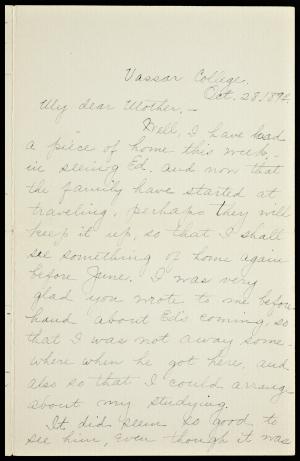 Vassar College.
Oct. 28, 189
My dear Mother,-
Well, I have had
a piece of home this week,-
in seeing Ed. and now that
the family have started at
traveling, perhaps they will
keep it up, so that I shall
see something of home again
before June. I was very
glad you wrote to me before
hand about Ed's coming, so
that I was not away some-
where when he got here, and
also so that I could arrange
about my studying.
It did seem so good to
see him, even though it was